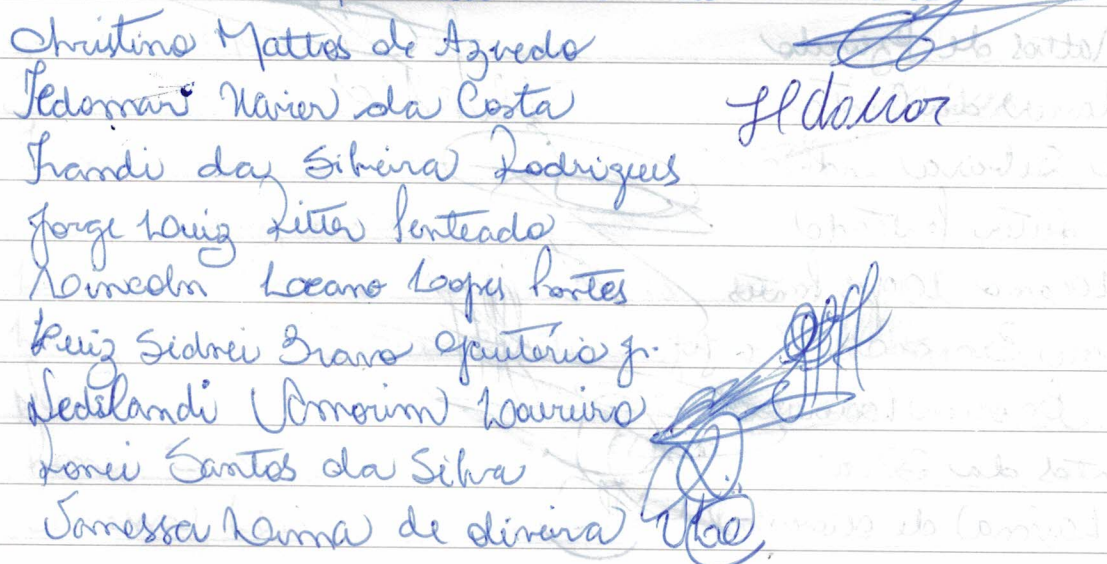 Christino Mattos de Azvedo
Ildomar Xavier da Costa Ildomar
Irandi da Silveira Rodrigues
Jorge Luiz Ritter Penteado
Lincoln Loeano Lopes Pontes
Luiz Sidnei Bravo Gautério Jr.
Nedilandi Amorim Loureiro
Ronei Santos da Silva
Vanessa Lima de Oliveira